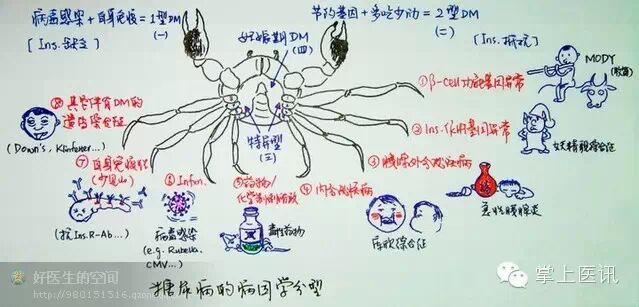 病毒感染+自身免疫=1型DM
(一)
[Ins.缺乏]
节约基因+多吃少动=2型DM
(二)
[Ins.抵抗]
妊娠期DM
(四)
特异型
(三)
①β-cell功能基因异常
MODY
②Ins.作用基因异常
妖精貌综合征
③胰腺外分泌疾病
急性胰腺炎
④内分泌疾病
库欣综合征
⑤药物/
化学制剂所致
毒性药物
⑥Infxn.
病毒感染
(e.g. Rubella.
CMV...)
⑦自身免疫
(少见)
(抗Ins.R-Ab...)
⑧其它伴有DM的
遗传综合征
(Down's, Klinfelter...)
糖尿病的病因学分型
好医生的空间
http://980151516.qzone
掌上医讯